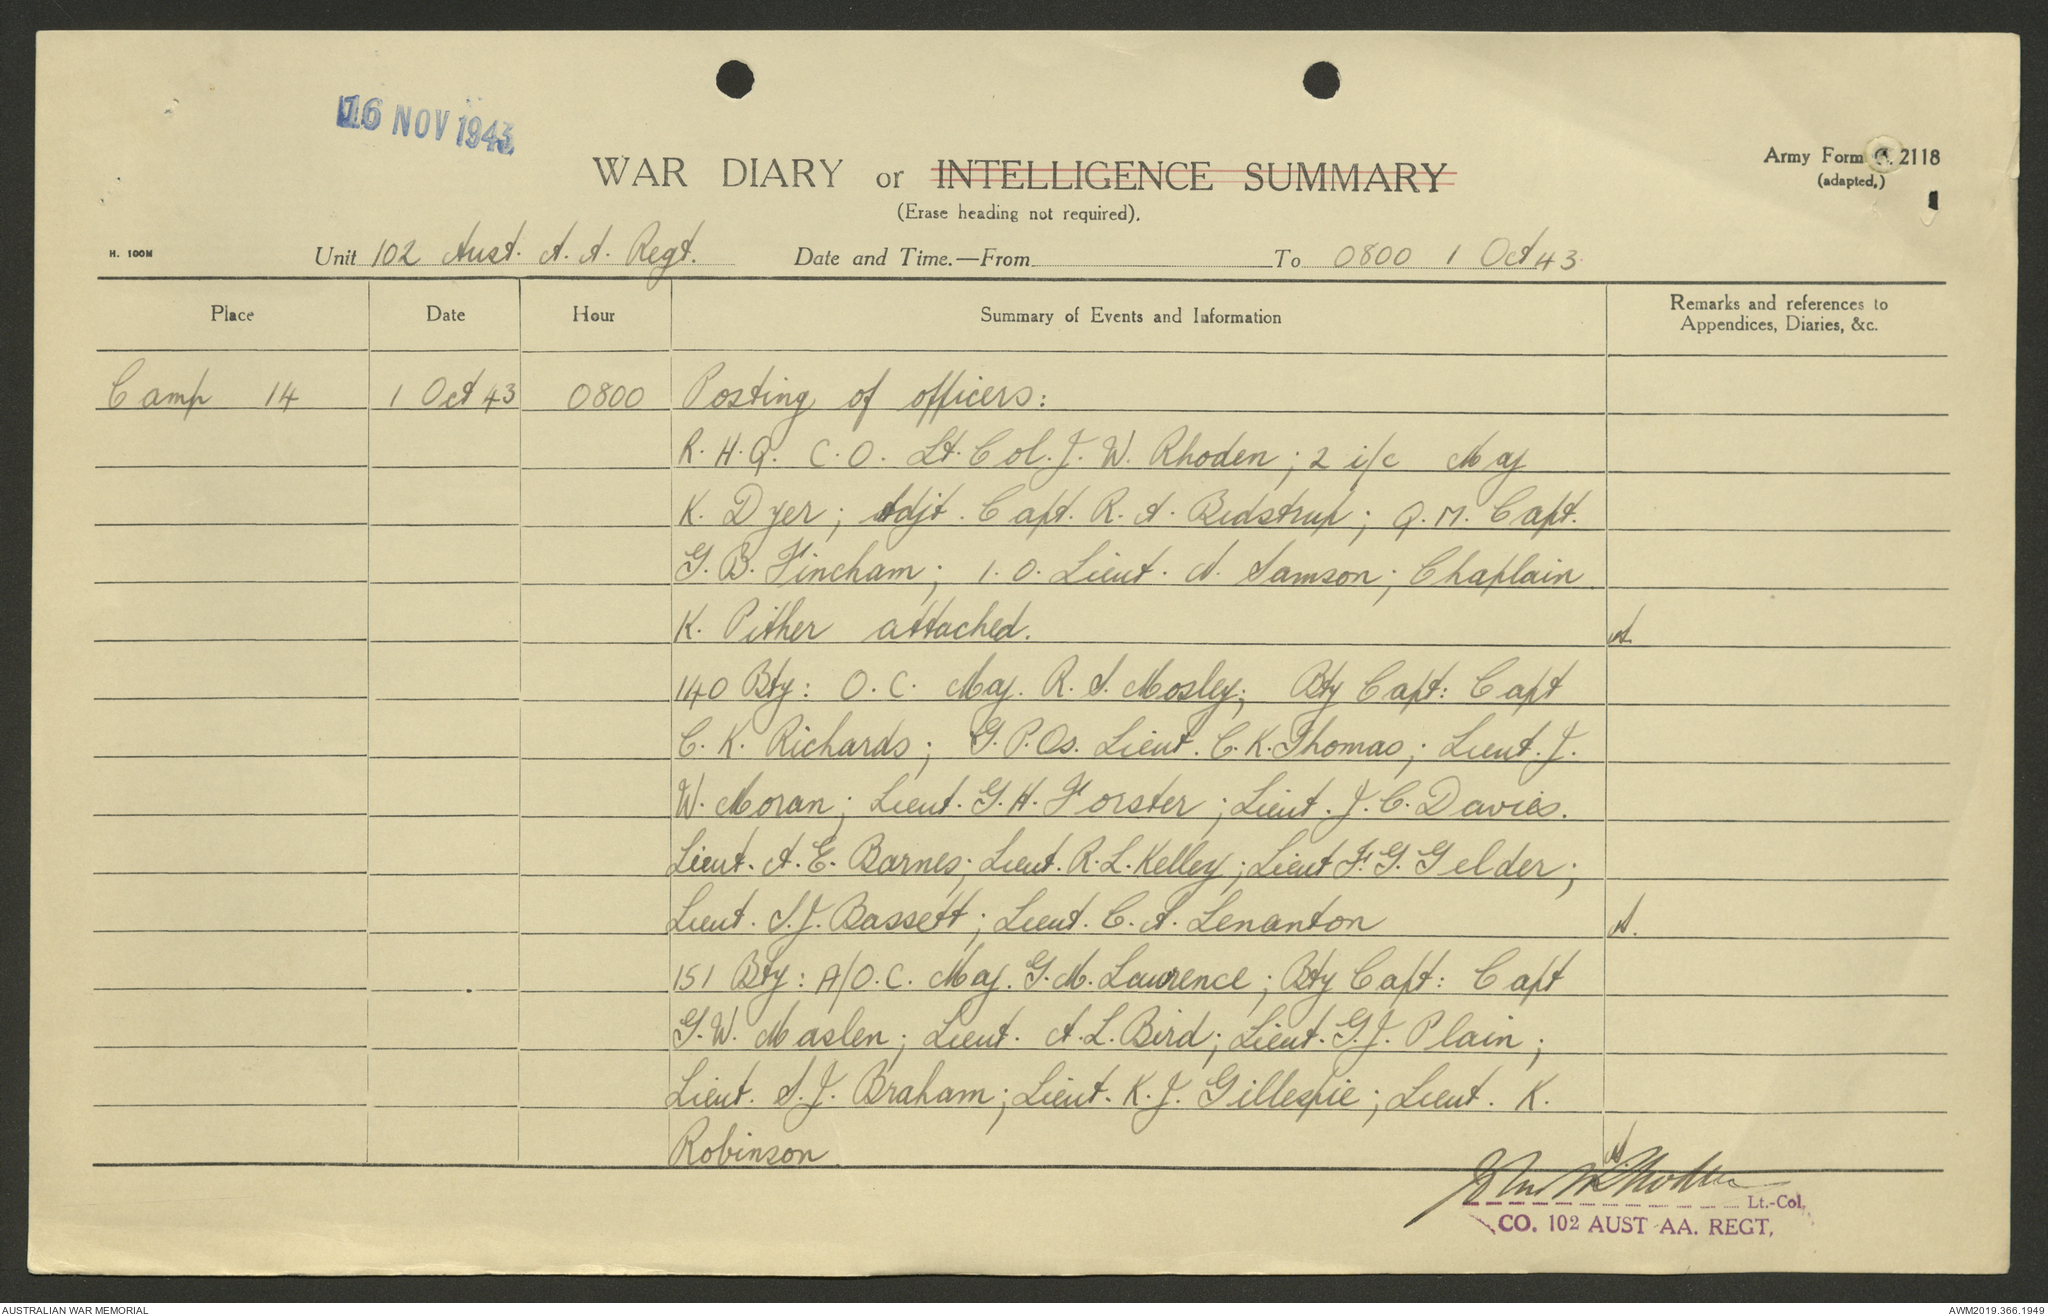 16 NOV 1943
WAR DIARY or INTELLIGENCE SUMMARY
(Erase heading not required).
Army Form C. 2118
(adapted.)
H. 100M
Unit 102 Aust. A. A. Regt. Date and Time.—From To 0800 1 Oct 43
Place Date Hour Summary of Events and Information Remarks and references to
Appendices, Diaries, &c.
Camp 14 1 Oct 43 0800 Posting of officers:
R. H. Q. C. O. Lt. Col. J. W. Rhoden; 2 i/c Maj
K. Dyer; Adjt. Capt. R. A. Bidstrup; Q. M. Capt.
G. B. Fincham; I. O. Lieut. A. Samson; Chaplain
K. Pither attached. A.
140 Bty: O. C. Maj. R. S. Mosley; Bty Capt: Capt
C. K. Richards; G. P. Os. Lieut. C. K. Thomas; Lieut. J.
W. Moran; Lieut. G. H. Forster; Lieut. J. C. Davies.
Lieut. A. E. Barnes; Lieut. R. L. Kelley; Lieut F. G. Gelder;
Lieut. S. J. Bassett; Lieut. C. A. Lenanton A.
151 Bty: A/O. C. Maj. G. M. Lawrence; Bty Capt: Capt
G. W. Maslen; Lieut. A. L. Bird; Lieut. G. J. Plain;
Lieut. S. J. Braham; Lieut. K. J. Gillespie; Lieut. K.
Robinson. A.
John W Rhoden Lt.-Col.
CO. 102 AUST AA. REGT,
AUSTRALIAN WAR MEMORIAL AWM2019.366.1949